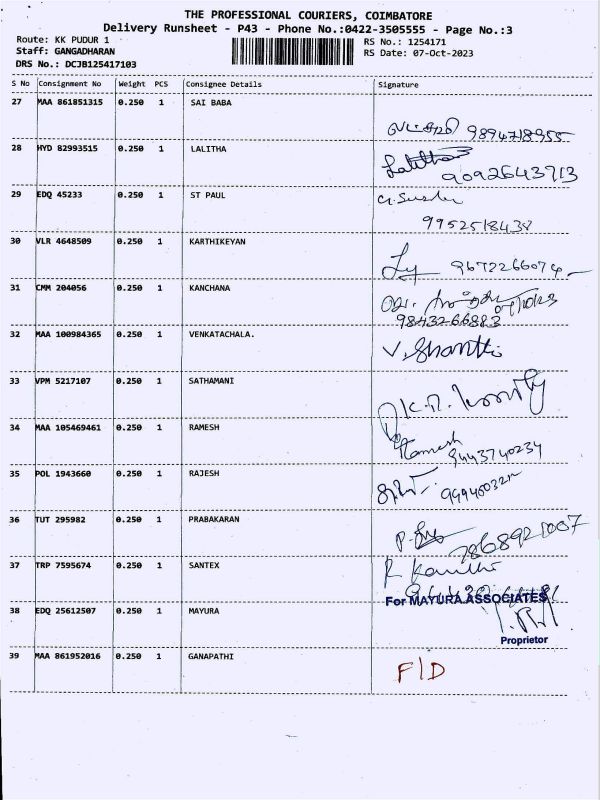 THE PROFESSIONAL COURIERS, COIMBATORE
Delivery Runsheet - P43 - Phone No.:0422-3505555 - Page No.:3
Route: KK PUDUR 1
Staff: GANGADHARAN
DRS No.: DCJB125417103
RS No.: 1254171
RS Date: 07-Oct-2023
S No Consignment No Weight PCS Consignee Details Signature
27 MAA 861851315 0.250 1 SAI BABA
9894718955
28 HYD 82993515 0.250 1 LALITHA
Lalitha
9092643713
29 EDQ 45233 0.250 1 ST PAUL
9952518438
30 VLR 4648509 0.250 1 KARTHIKEYAN
9672266074
31 CMM 204056 0.250 1 KANCHANA
9843266883
32 MAA 100984365 0.250 1 VENKATACHALA.
V. Shanthi
33 VPM 5217107 0.250 1 SATHAMANI
34 MAA 105469461 0.250 1 RAMESH
Ramesh
9443740234
35 POL 1943660 0.250 1 RAJESH
36 TUT 295982 0.250 1 PRABAKARAN
7868921007
37 TRP 7595674 0.250 1 SANTEX
38 EDQ 25612507 0.250 1 MAYURA
For MAYURA ASSOCIATES
Proprietor
39 MAA 861952016 0.250 1 GANAPATHI
F/D